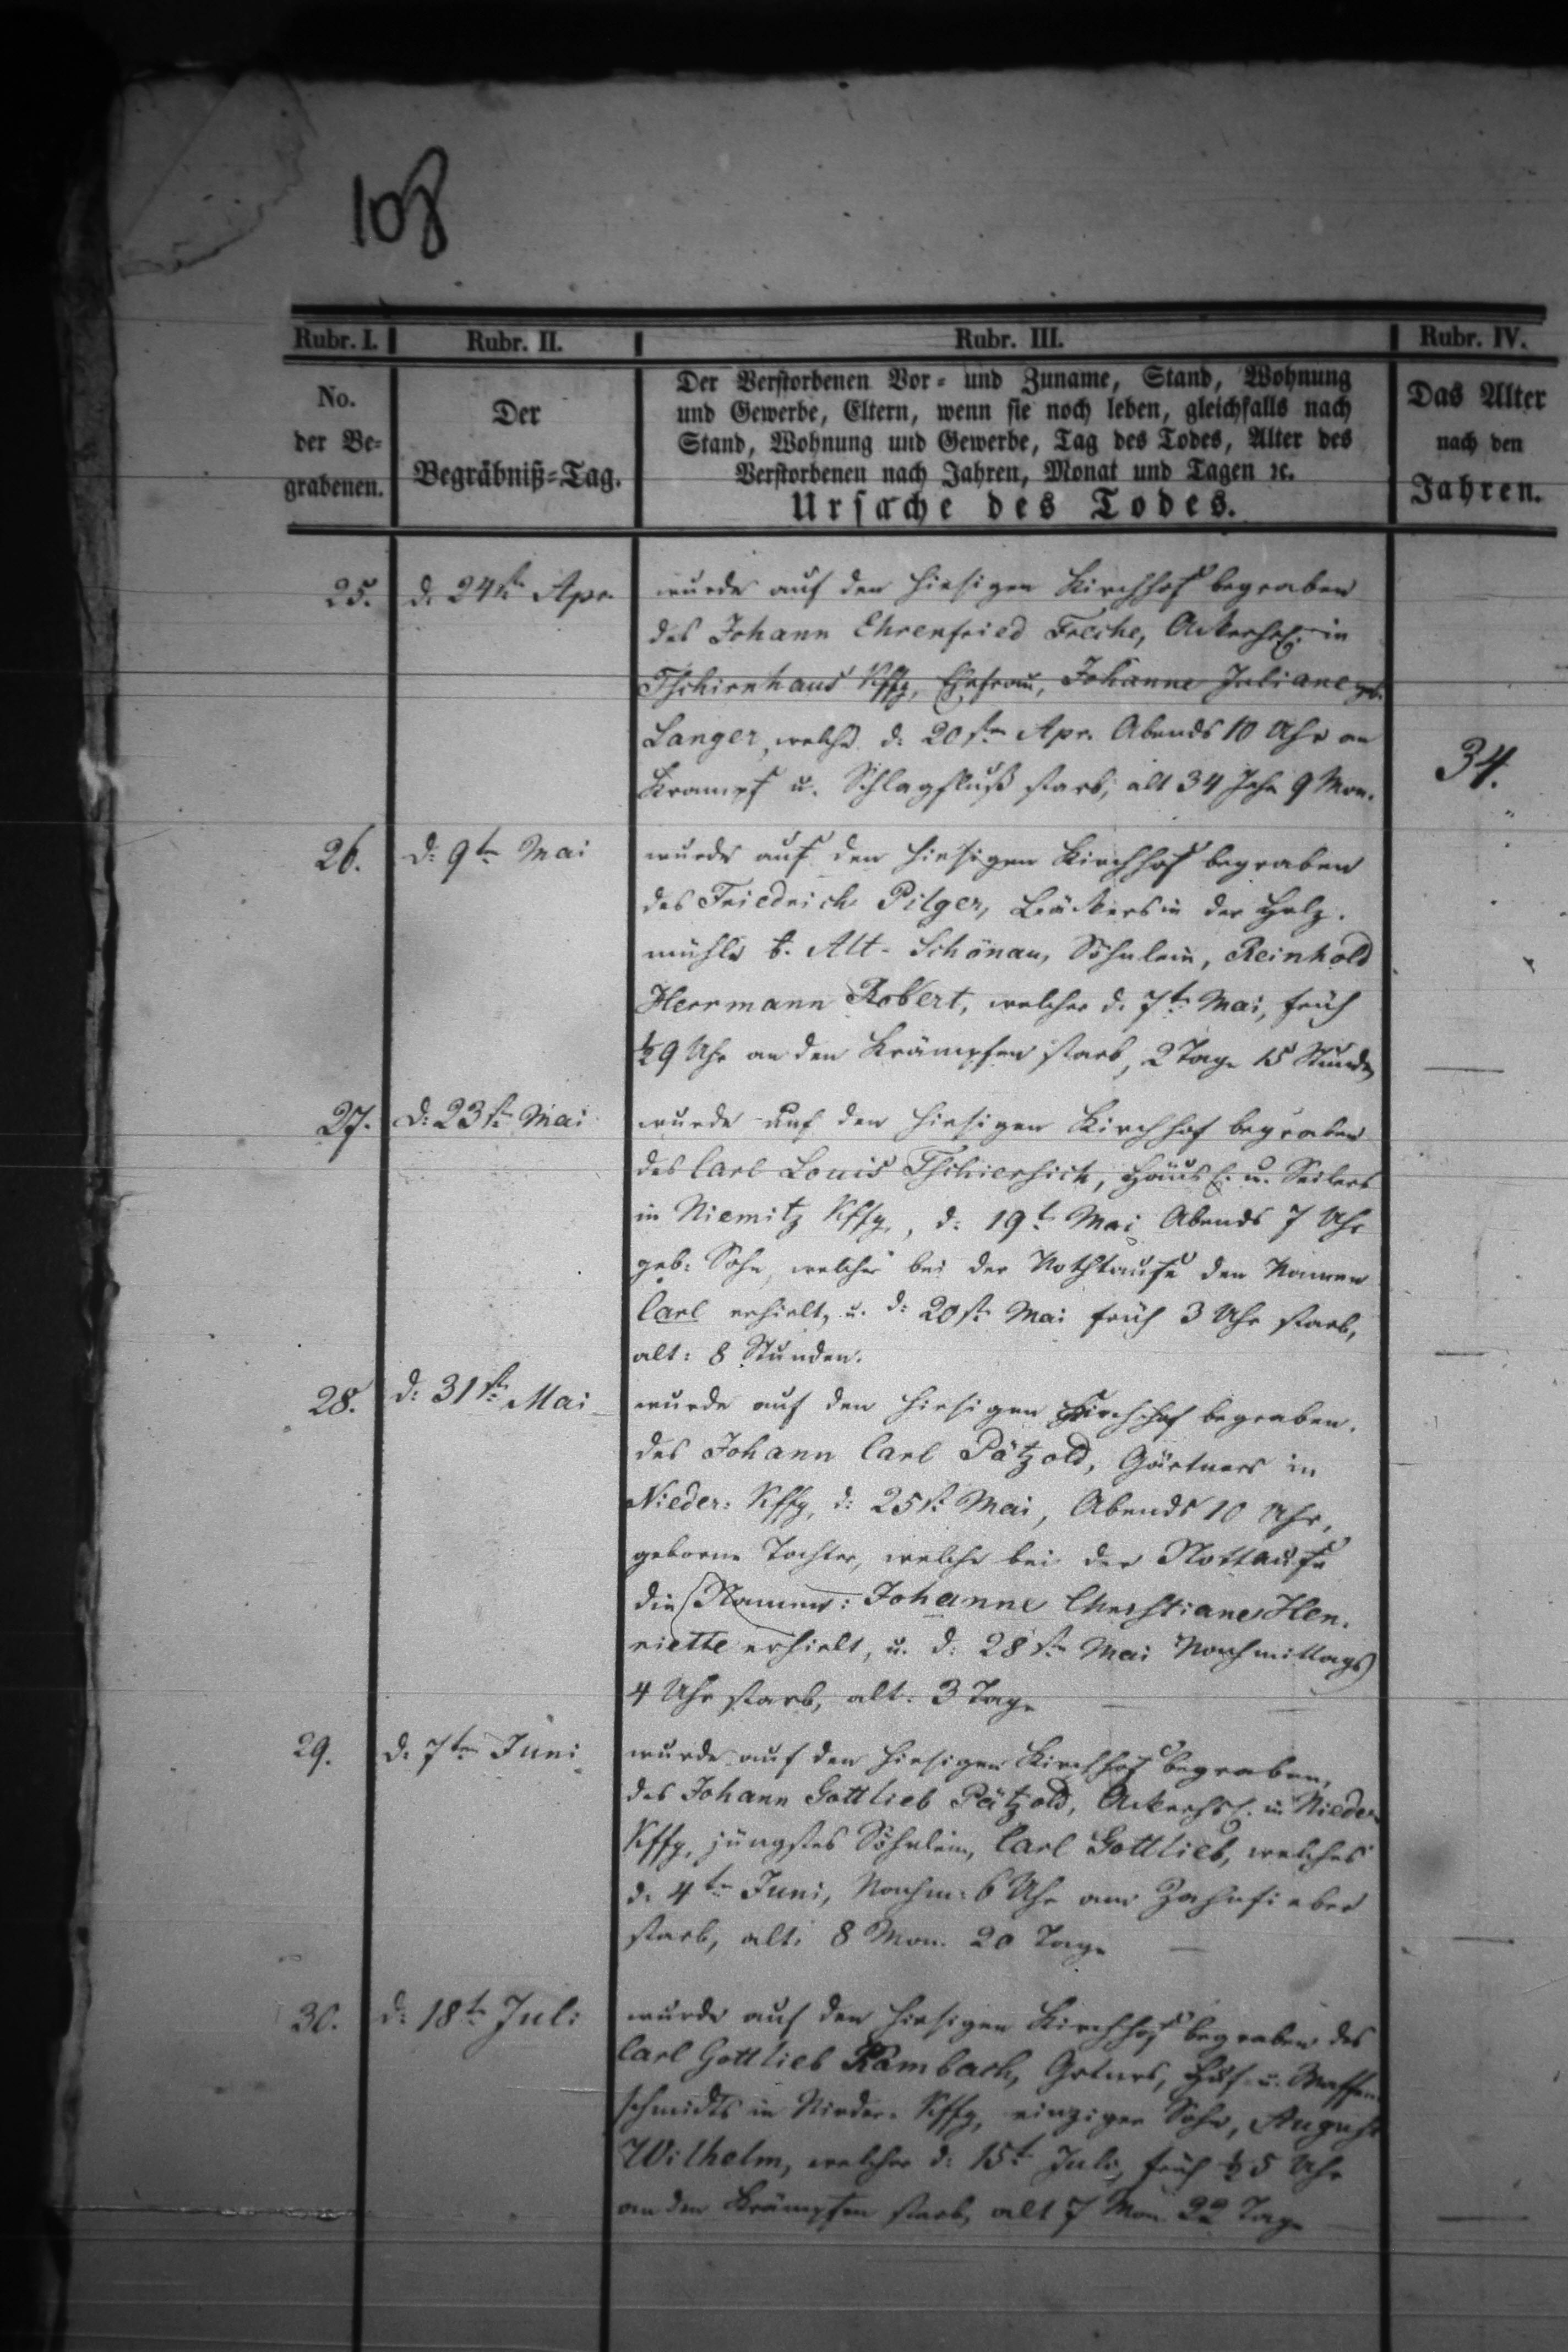 108
Rubr. I. Rubr. II. Rubr. III. Rubr. IV.
No.
der Be-
grabenen.
Der
Begräbniß-Tag.
Der Verstorbenen Vor- und Zuname, Stand, Wohnung
und Gewerbe, Eltern, wenn sie noch leben, gleichfalls nach
Stand, Wohnung und Gewerbe, Tag des Todes, Alter des
Verstorbenen nach Jahren, Monat und Tagen ꝛc.
Ursache des Todes.
Das Alter
nach den
Jahren.
25. d. 24st Apr. wurde auf den hiesigen Kirchhof begraben
des Johann Ehrenfried Freche, Ackerhsl. in
Tschirnhaus Kffg, Ehefrau, Johanne Juliane gb.
Langer, welche d. 20sten Apr. Abends 10 Uhr an
Krampf u. Schlagfluß starb, alt 34 Jahr 9 Mon. 34.
26. d: 9t Mai wurde auf den hiesigen Kirchhof begraben
des Friedrich Pilger, Bäckers in der Holz-
mühle b. Alt-Schönau, Söhnlein, Reinhold
Herrmann Robert, welcher d. 7t Mai, früh
½9 Uhr an den Krämpfen starb, 2 Tage 15 Stunden
27. d: 23st Mai wurde auf den hiesigen Kirchhof begraben
des Carl Louis Tschierschich, Häusl. u. Seilers
in Niemitz Kffg., d: 19t Mai Abends 7 Uhr
geb: Sohn, welcher bei der Nothtaufe den Namen
Carl erhielt, u. d: 20st Mai früh 3 Uhr starb,
alt: 8 Stunden.
28. d: 31st Mai wurde auf den hiesigen Kirchhof begraben.
des Johann Carl Pätzold, Gärtners in
Nieder: Kffg, d: 25st Mai, Abends 10 Uhr,
geborne Tochter, welche bei der Nottaufe
die Namen: Johanne Christiane Hen-
riette erhielt, u. d: 28st Mai Nachmittags
4 Uhr starb, alt: 3 Tage
29. d: 7ten Juni wurde auf den hiesigen Kirchhof begraben,
des Johann Gottlieb Pätzold, Ackerhsl. in Nieder
Kffg, jüngstes Söhnlein, Carl Gottlieb, welches
d. 4t Juni, Nachm: 6 Uhr am Zahnfieber
starb, alt: 8 Mon. 20 Tage
30. d: 18t Juli wurde auf den hiesigen Kirchhof begraben des
Carl Gottlieb Rambach, Grtners, Huf- u. Waffen
schmidts in Nieder-Kffg, einziger Sohn, August
Wilhelm, welcher d: 15t Juli, früh ½5 Uhr
an den Krämpfen starb, alt 7 Mon. 22 Tage